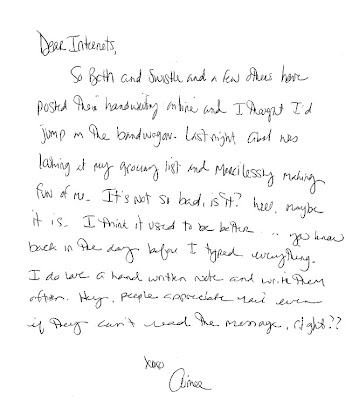 Dear Internets,
So Beth and Swistle and a few others have
posted their handwriting online and I thought I'd
jump on the bandwagon. Last night was
looking at my grocery list and mercilessly making
fun of me. It's not so bad, is it? Well, maybe
it is. I think it used to be better... you know
back in the day before I typed everything.
I do love a hand written note and write them
often. Hey, people appreciate mail even
if they can't read the message, right??
xoxo
Aimee